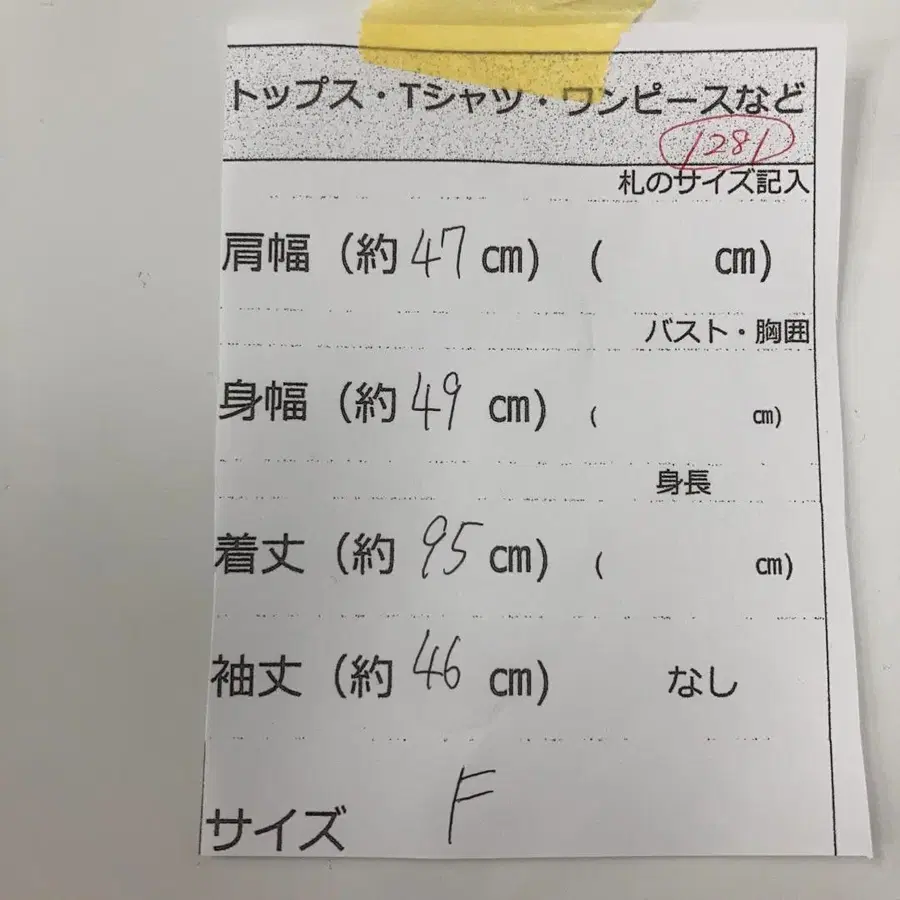 トップス・Tシャツ・ワンピースなど
1281
札のサイズ記入
肩幅（約 47 cm）（ cm）
バスト・胸囲
身幅（約 49 cm）（ cm）
身長
着丈（約 95 cm）（ cm）
袖丈（約 46 cm） なし
サイズ F